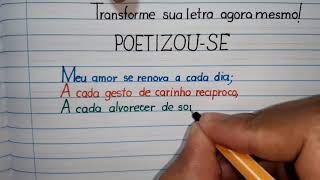 Transforme sua letra agora mesmo!
POETIZOU-SE
Meu amor se renova a cada dia;
A cada gesto de carinho reciproco,
A cada alvorecer de